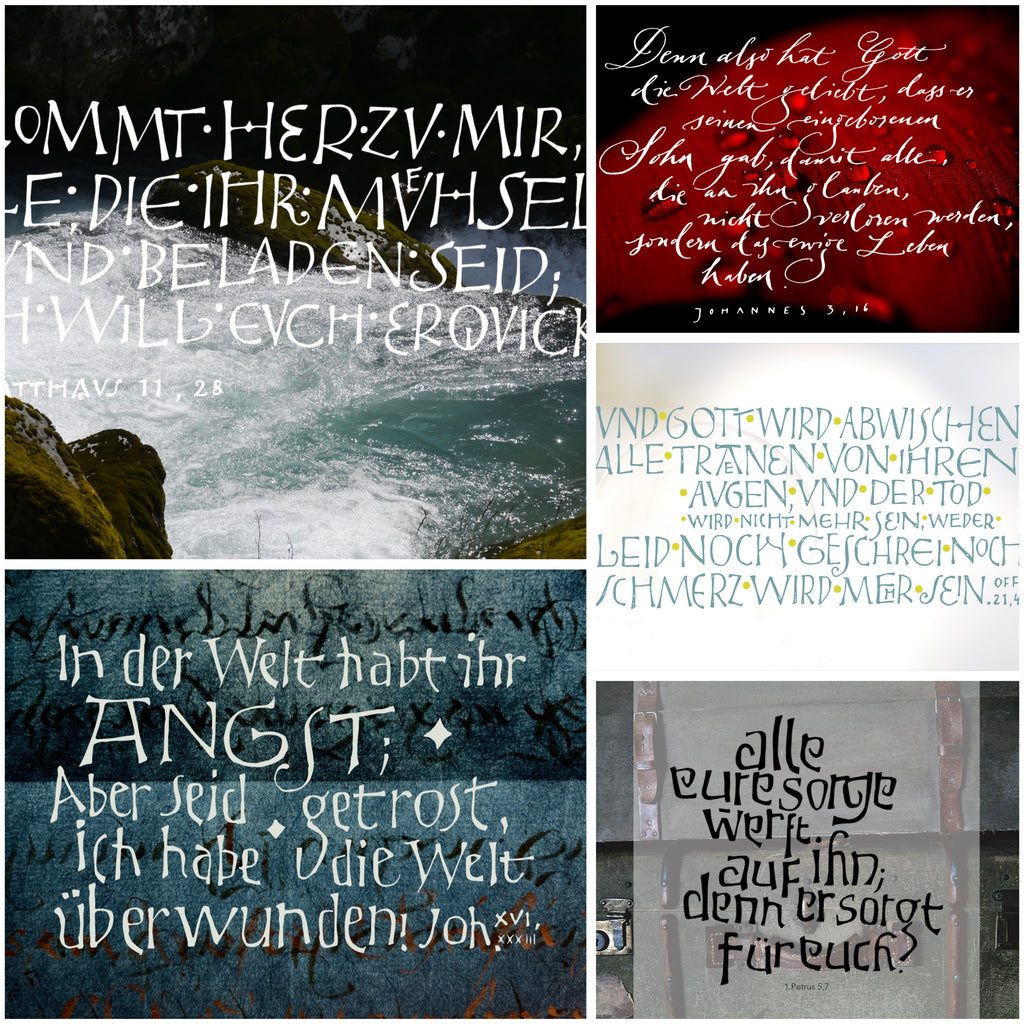 OMMT·HER·ZV·MIR,
E; DIE·IHR·MVEHSEL
VND·BELADEN·SEID;
H·WILL·EVCH·ERQVICK
ATTHAVS 11, 28
Denn also hat Gott
die Welt geliebt, dass er
seinen eingeborenen
Sohn gab, damit alle,
die an ihn glauben,
nicht verloren werden,
sondern das ewige Leben
haben.
JOHANNES 3, 16
VND·GOTT·WIRD·ABWISCHEN
ALLE·TRAENEN·VON·IHREN
·AVGEN, VND·DER·TOD·
·WIRD·NICHT·MEHR·SEIN, WEDER·
LEID·NOCH·GESCHREI·NOCH
SCHMERZ·WIRD·MEHR·SEIN. OFF
21,4
In der Welt habt ihr
ANGST;
Aber seid getrost,
ich habe die Welt
überwunden! Joh. XVI,
XXXIII
alle
eure sorge
werft
auf ihn;
denn er sorgt
für euch.
1.Petrus 5,7